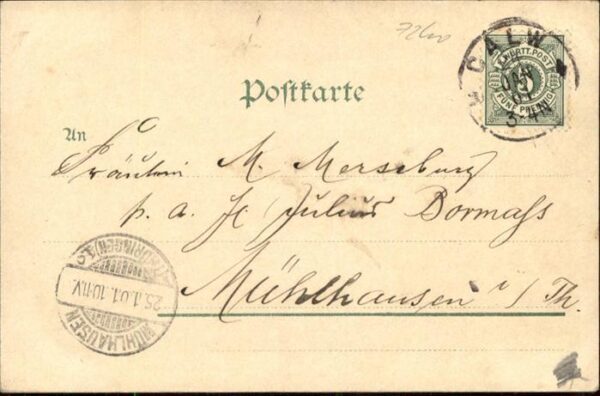 72600
CALW
24
JAN
01
3-4N
K. WÜRTT. POST
5
FÜNF PFENNIG
Postkarte
An
Fräulein M. Merseburg
p. a. H. Julius Bormaß
Mühlhausen i/Th.
MÜHLHAUSEN (THÜRINGEN) 1
25.1.01.10-11V.